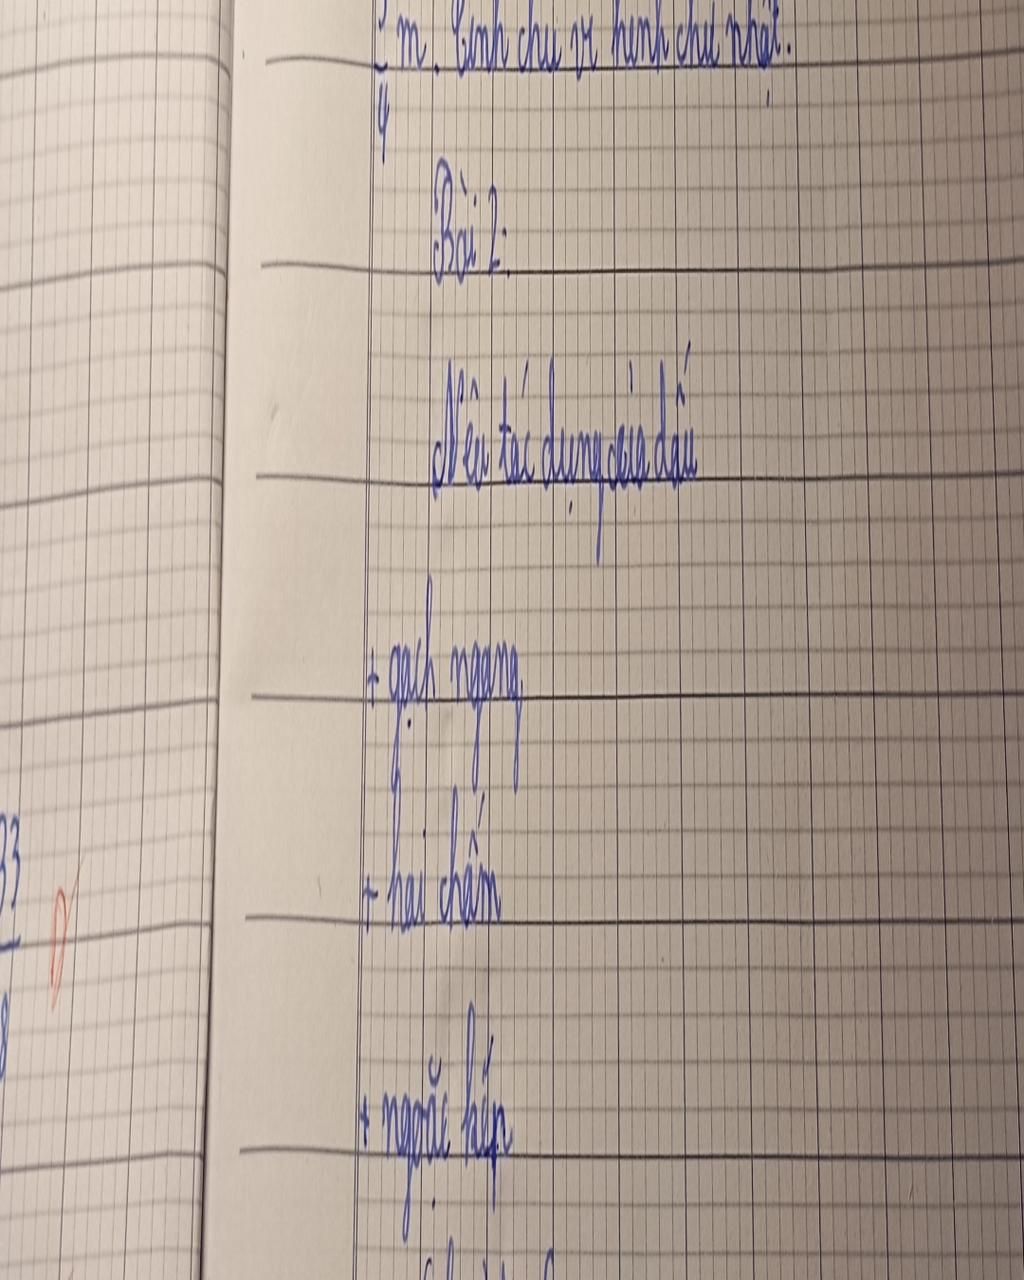 m. Tính chu vi hình chữ nhật.
4
Bài 2:
Nêu tác dụng của dấu
+ gạch ngang
+ hai chấm
+ ngoặc kép
33
8